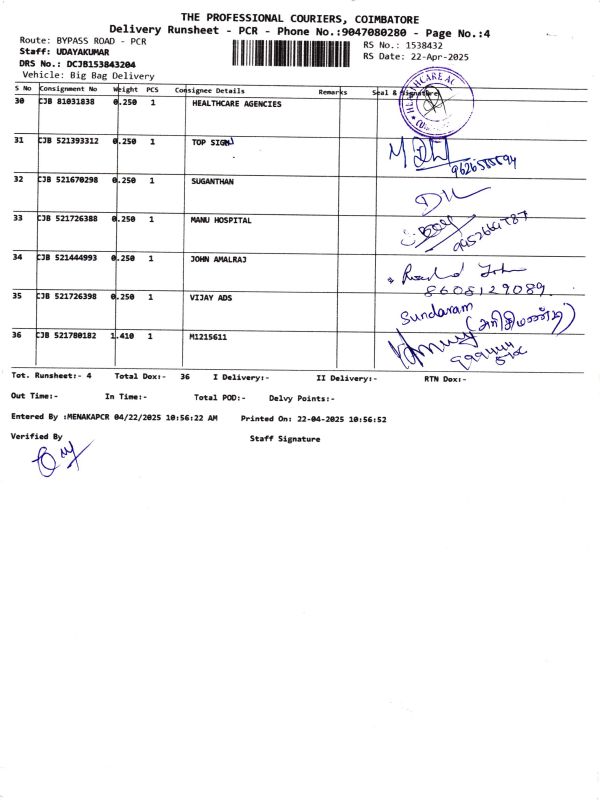 THE PROFESSIONAL COURIERS, COIMBATORE
Delivery Runsheet - PCR - Phone No.:9047080280 - Page No.:4
Route: BYPASS ROAD - PCR
RS No.: 1538432
Staff: UDAYAKUMAR
RS Date: 22-Apr-2025
DRS No.: DCJB153843204
Vehicle: Big Bag Delivery
S No Consignment No Weight PCS Consignee Details Remarks Seal & Signature
30 CJB 81031838 0.250 1 HEALTHCARE AGENCIES
31 CJB 521393312 0.250 1 TOP SIGN
32 CJB 521670298 0.250 1 SUGANTHAN
33 CJB 521726388 0.250 1 MANU HOSPITAL
34 CJB 521444993 0.250 1 JOHN AMALRAJ
8608129089
35 CJB 521726398 0.250 1 VIJAY ADS
Sundaram
36 CJB 521780182 1.410 1 M1215611
Tot. Runsheet:- 4 Total Dox:- 36 I Delivery:- II Delivery:- RTN Dox:-
Out Time:- In Time:- Total POD:- Delvy Points:-
Entered By :MENAKAPCR 04/22/2025 10:56:22 AM Printed On: 22-04-2025 10:56:52
Verified By Staff Signature